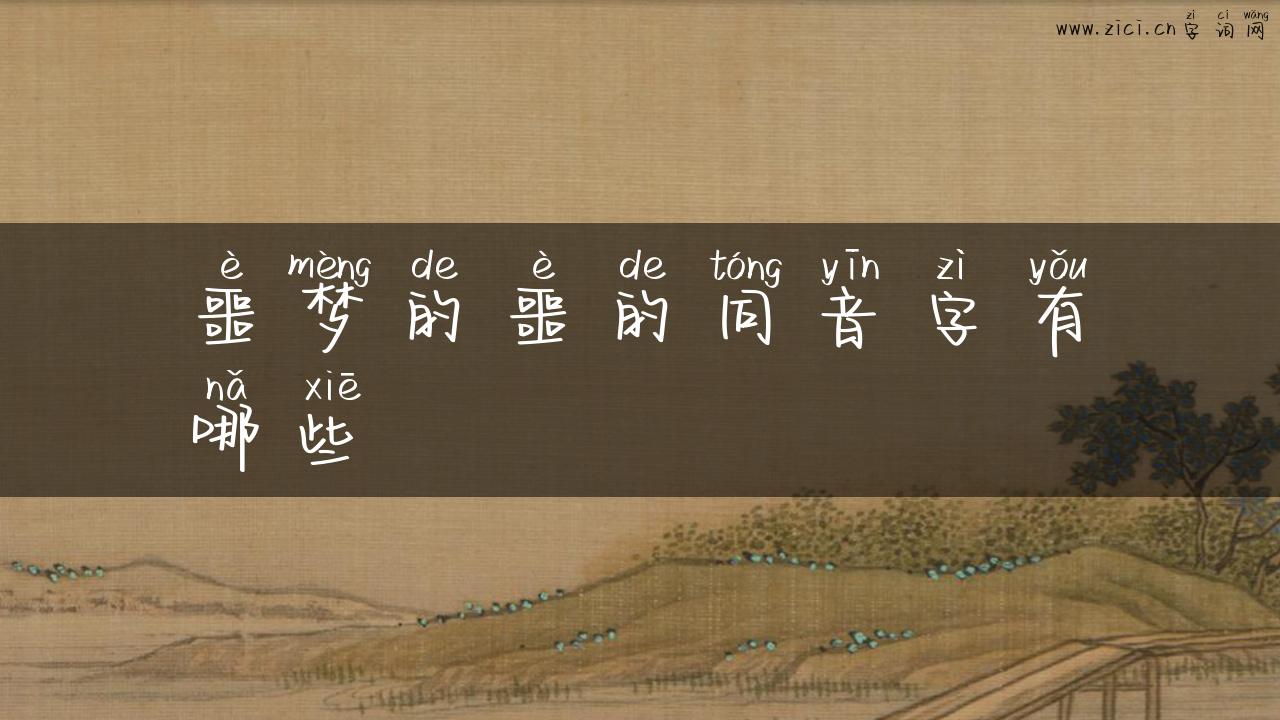 zì cí wǎng
www.zici.cn 字词网
è mèng de è de tóng yīn zì yǒu
噩梦的噩的同音字有
nǎ xiē
哪些